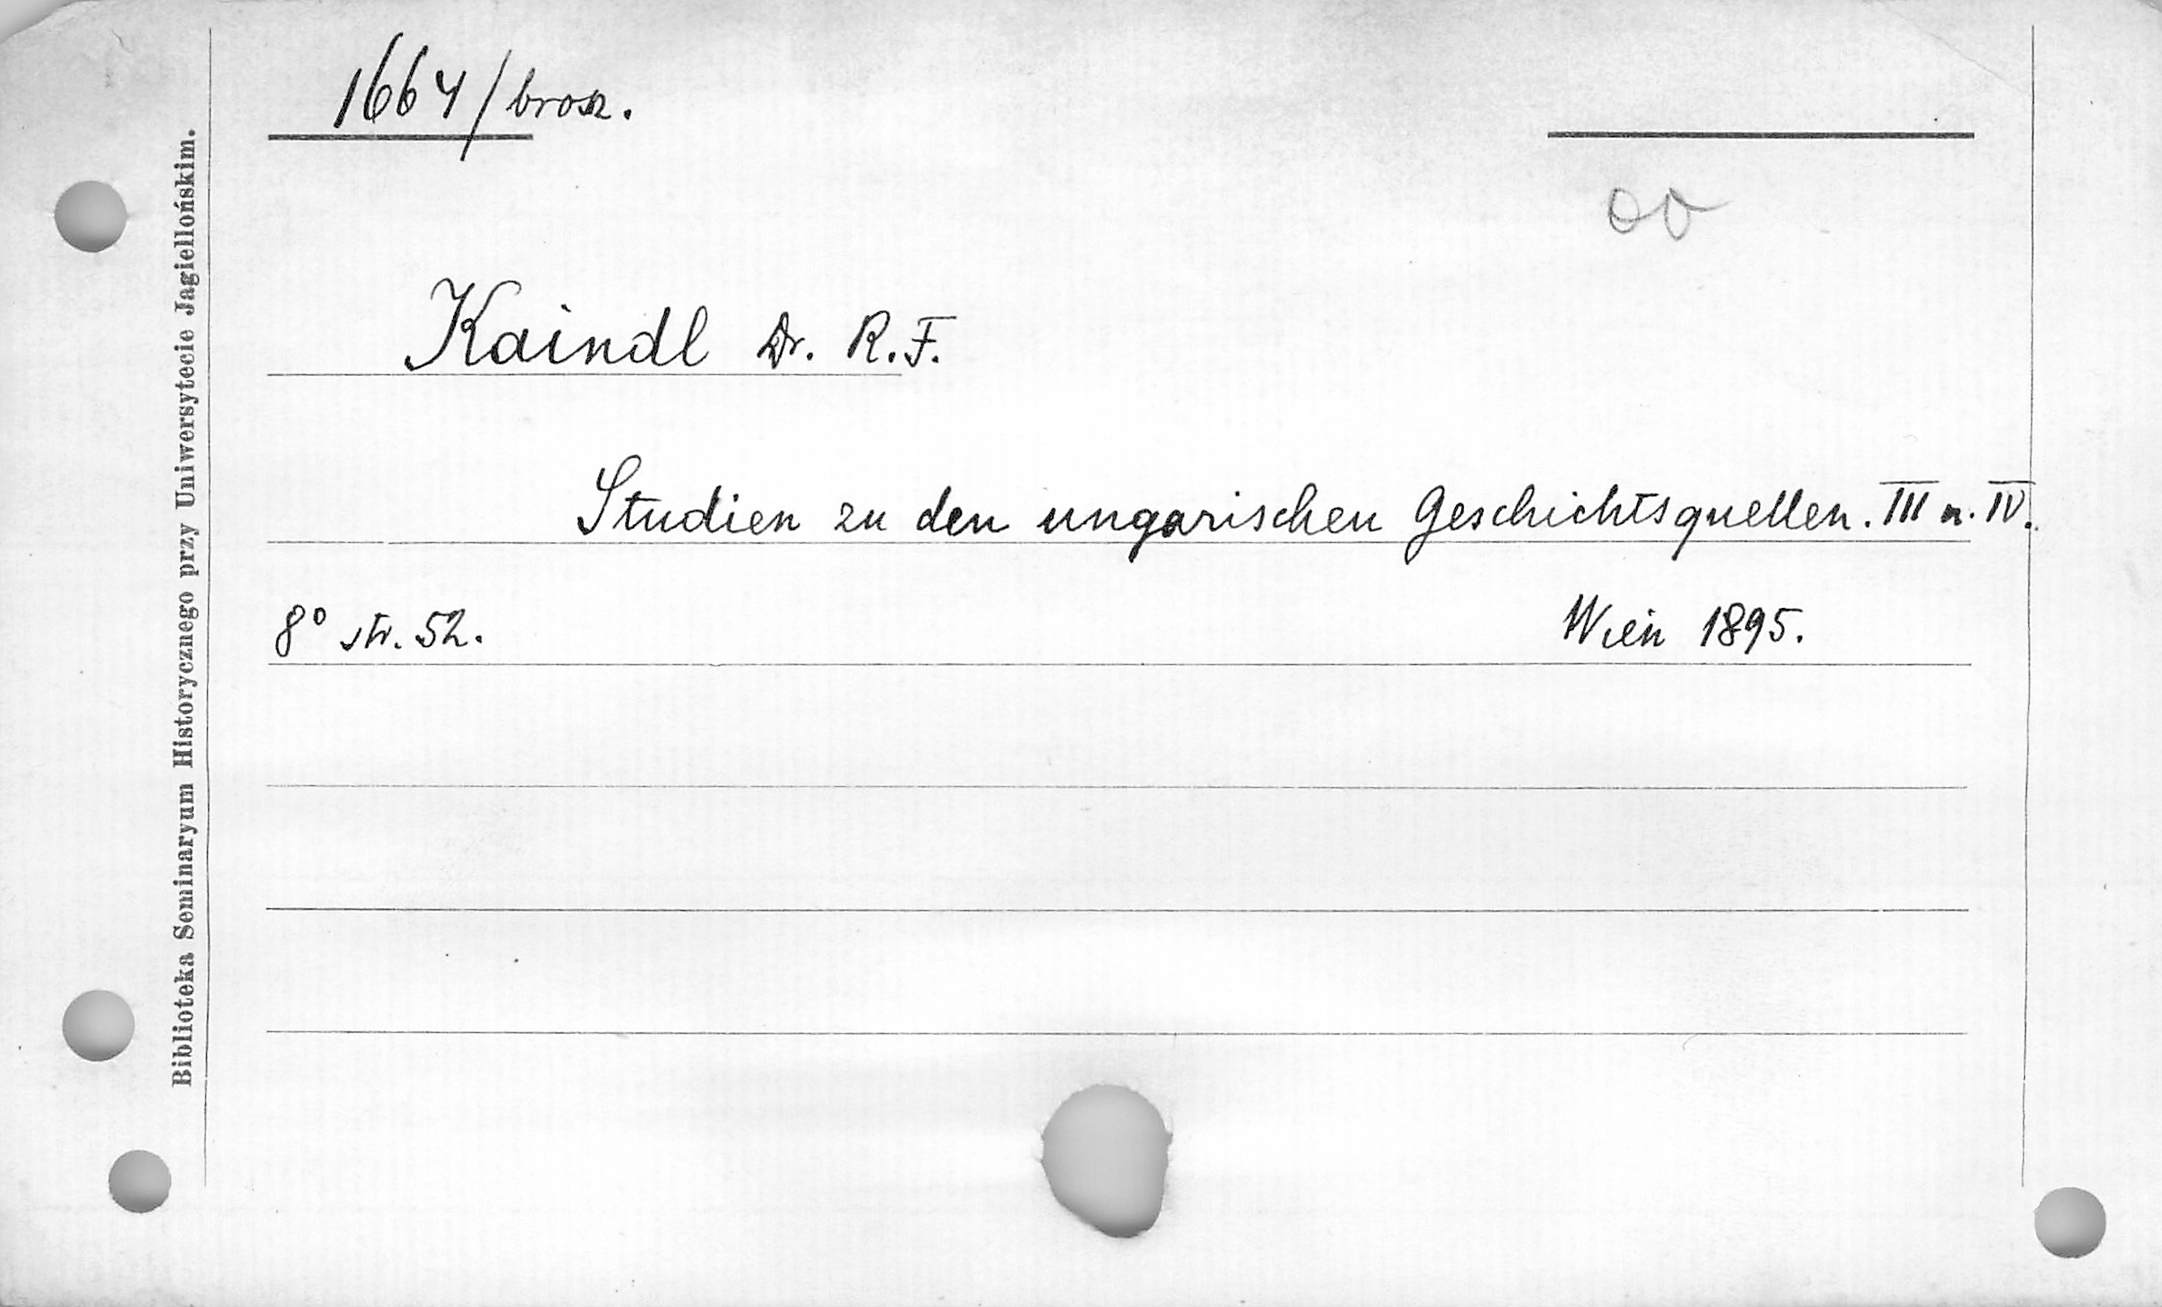 1664/brosz.
oo
Kaindl Dr. R. F.
Studien zu den ungarischen Geschichtsquellen. III u. IV.
8° str. 52.
Wien 1895.
Biblioteka Seminaryum Historycznego przy Uniwersytecie Jagiellońskim.